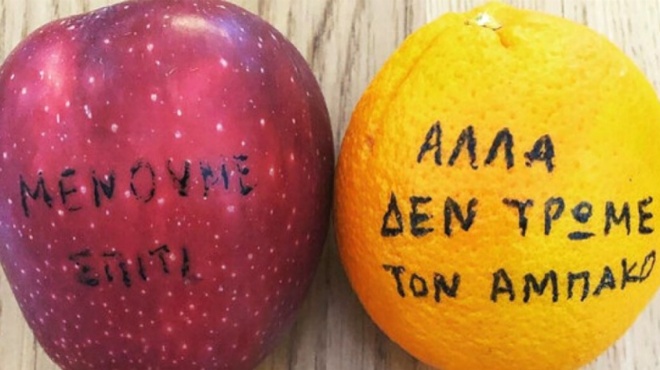 ΜΕΝΟΥΜΕ
ΣΠΙΤΙ
ΑΛΛΑ
ΔΕΝ ΤΡΩΜΕ
ΤΟΝ ΑΜΠΑΚΟ